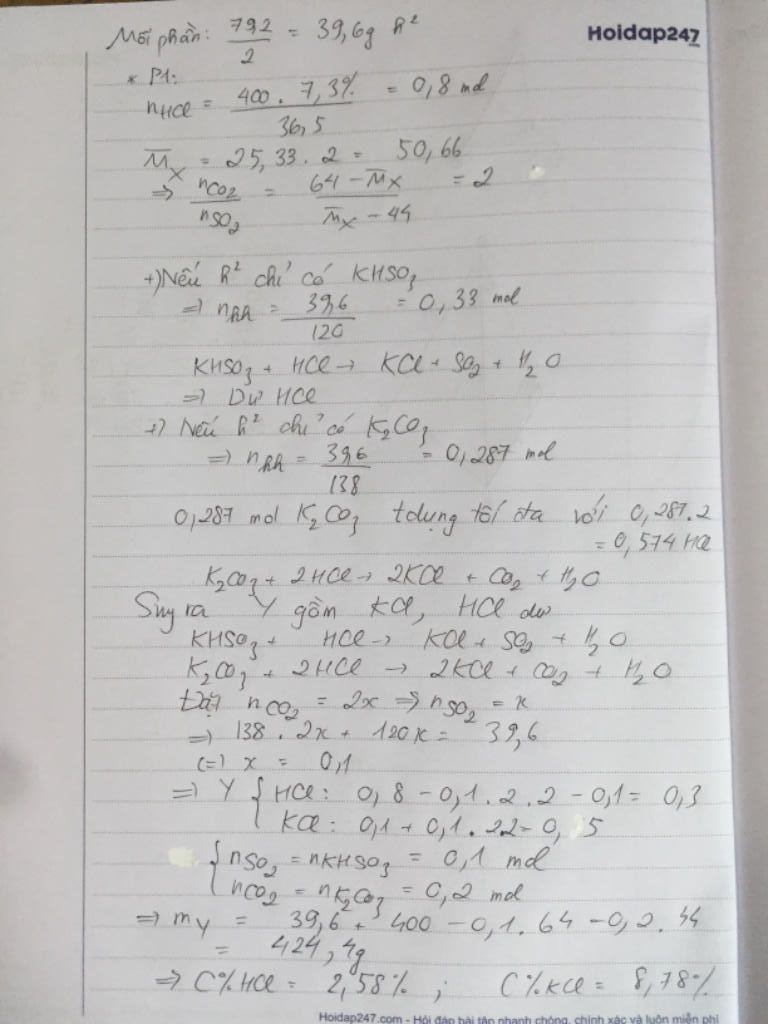 Mỗi phần: 792/2 = 39,6g h²
Hoidap247
* P1:
nHCl = 400 . 7,3% / 36,5 = 0,8 mol
M̅X = 25,33 . 2 = 50,66
=> nCO2/nSO2 = (64 - M̅X)/(M̅X - 44) = 2
+) Nếu h² chỉ có KHSO3
=> nhh = 39,6/120 = 0,33 mol
KHSO3 + HCl → KCl + SO2 + H2O
=> Dư HCl
+) Nếu h² chỉ có K2CO3
=> nhh = 39,6/138 = 0,287 mol
0,287 mol K2CO3 tdụng tối đa với 0,287.2
= 0,574 HCl
K2CO3 + 2HCl → 2KCl + CO2 + H2O
Suy ra Y gồm KCl, HCl dư
KHSO3 + HCl → KCl + SO2 + H2O
K2CO3 + 2HCl → 2KCl + CO2 + H2O
Đặt nCO2 = 2x => nSO2 = x
=> 138 . 2x + 120x = 39,6
(=) x = 0,1
=> Y { HCl: 0,8 - 0,1 . 2 . 2 - 0,1 = 0,3
KCl: 0,1 + 0,1 . 22 = 0,5
{ nSO2 = nKHSO3 = 0,1 mol
nCO2 = nK2CO3 = 0,2 mol
=> mY = 39,6 + 400 - 0,1 . 64 - 0,2 . 44
= 424,4g
=> C%HCl = 2,58% ; C%KCl = 8,78%
Hoidap247.com - Hỏi đáp bài tập nhanh chóng, chính xác và luôn miễn phí